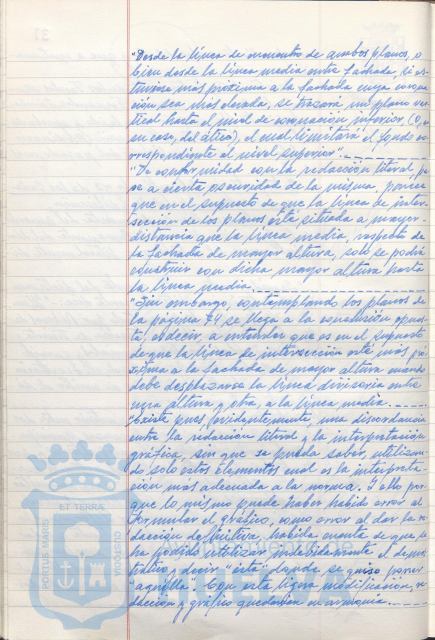 "Desde la línea de encuentro de ambos planos, o
bien desde la línea media entre fachada, si es-
tuviese más próxima a la fachada cuya corona-
ción sea más elevada, se trazará un plano ver-
tical hasta el nivel de coronación inferior (o, en
su caso, del ático), el cual limitará el fondo co-
rrespondiente al nivel superior".
"De conformidad con la redacción literal, pe-
se a cierta oscuridad de la misma, parece
que en el supuesto de que la línea de inter-
sección de los planos esté situada a mayor
distancia que la línea media, respecto de
la fachada de mayor altura, solo se podrá
construir con dicha mayor altura hasta
la línea media.
"Sin embargo, contemplando los planos de
la página 74 se llega a la conclusión opues-
ta, es decir, a entender que es en el supuesto
de que la línea de intersección esté más pró-
xima a la fachada de mayor altura cuando
debe desplazarse la línea divisoria entre
una altura y otra, a la línea media.
"Existe pues, evidentemente, una discordancia
entre la redacción literal y la interpretación
gráfica, sin que se pueda saber, utilizan-
do solo estos elementos cual es la interpreta-
ción más adecuada a la norma. Y ello por-
que lo mismo puede haber habido error al
formular el gráfico, como error al dar la re-
dacción definitiva, habida cuenta de que se
ha podido utilizar indebidamente el demos-
trativo y decir "ésta" donde se quiso poner
"aquella". Con esta ligera modificación, re-
dacción y gráfico quedarían en armonía.
PORTUS MARIS
ET TERRA
CUSTODIA